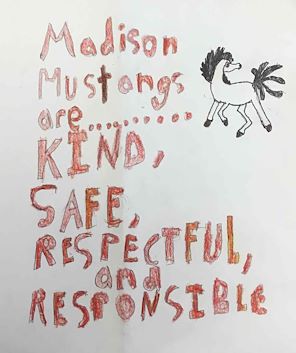 Madison
Mustangs
are..........
KIND,
SAFE,
RESPECTFUL,
and
RESPONSIBLE